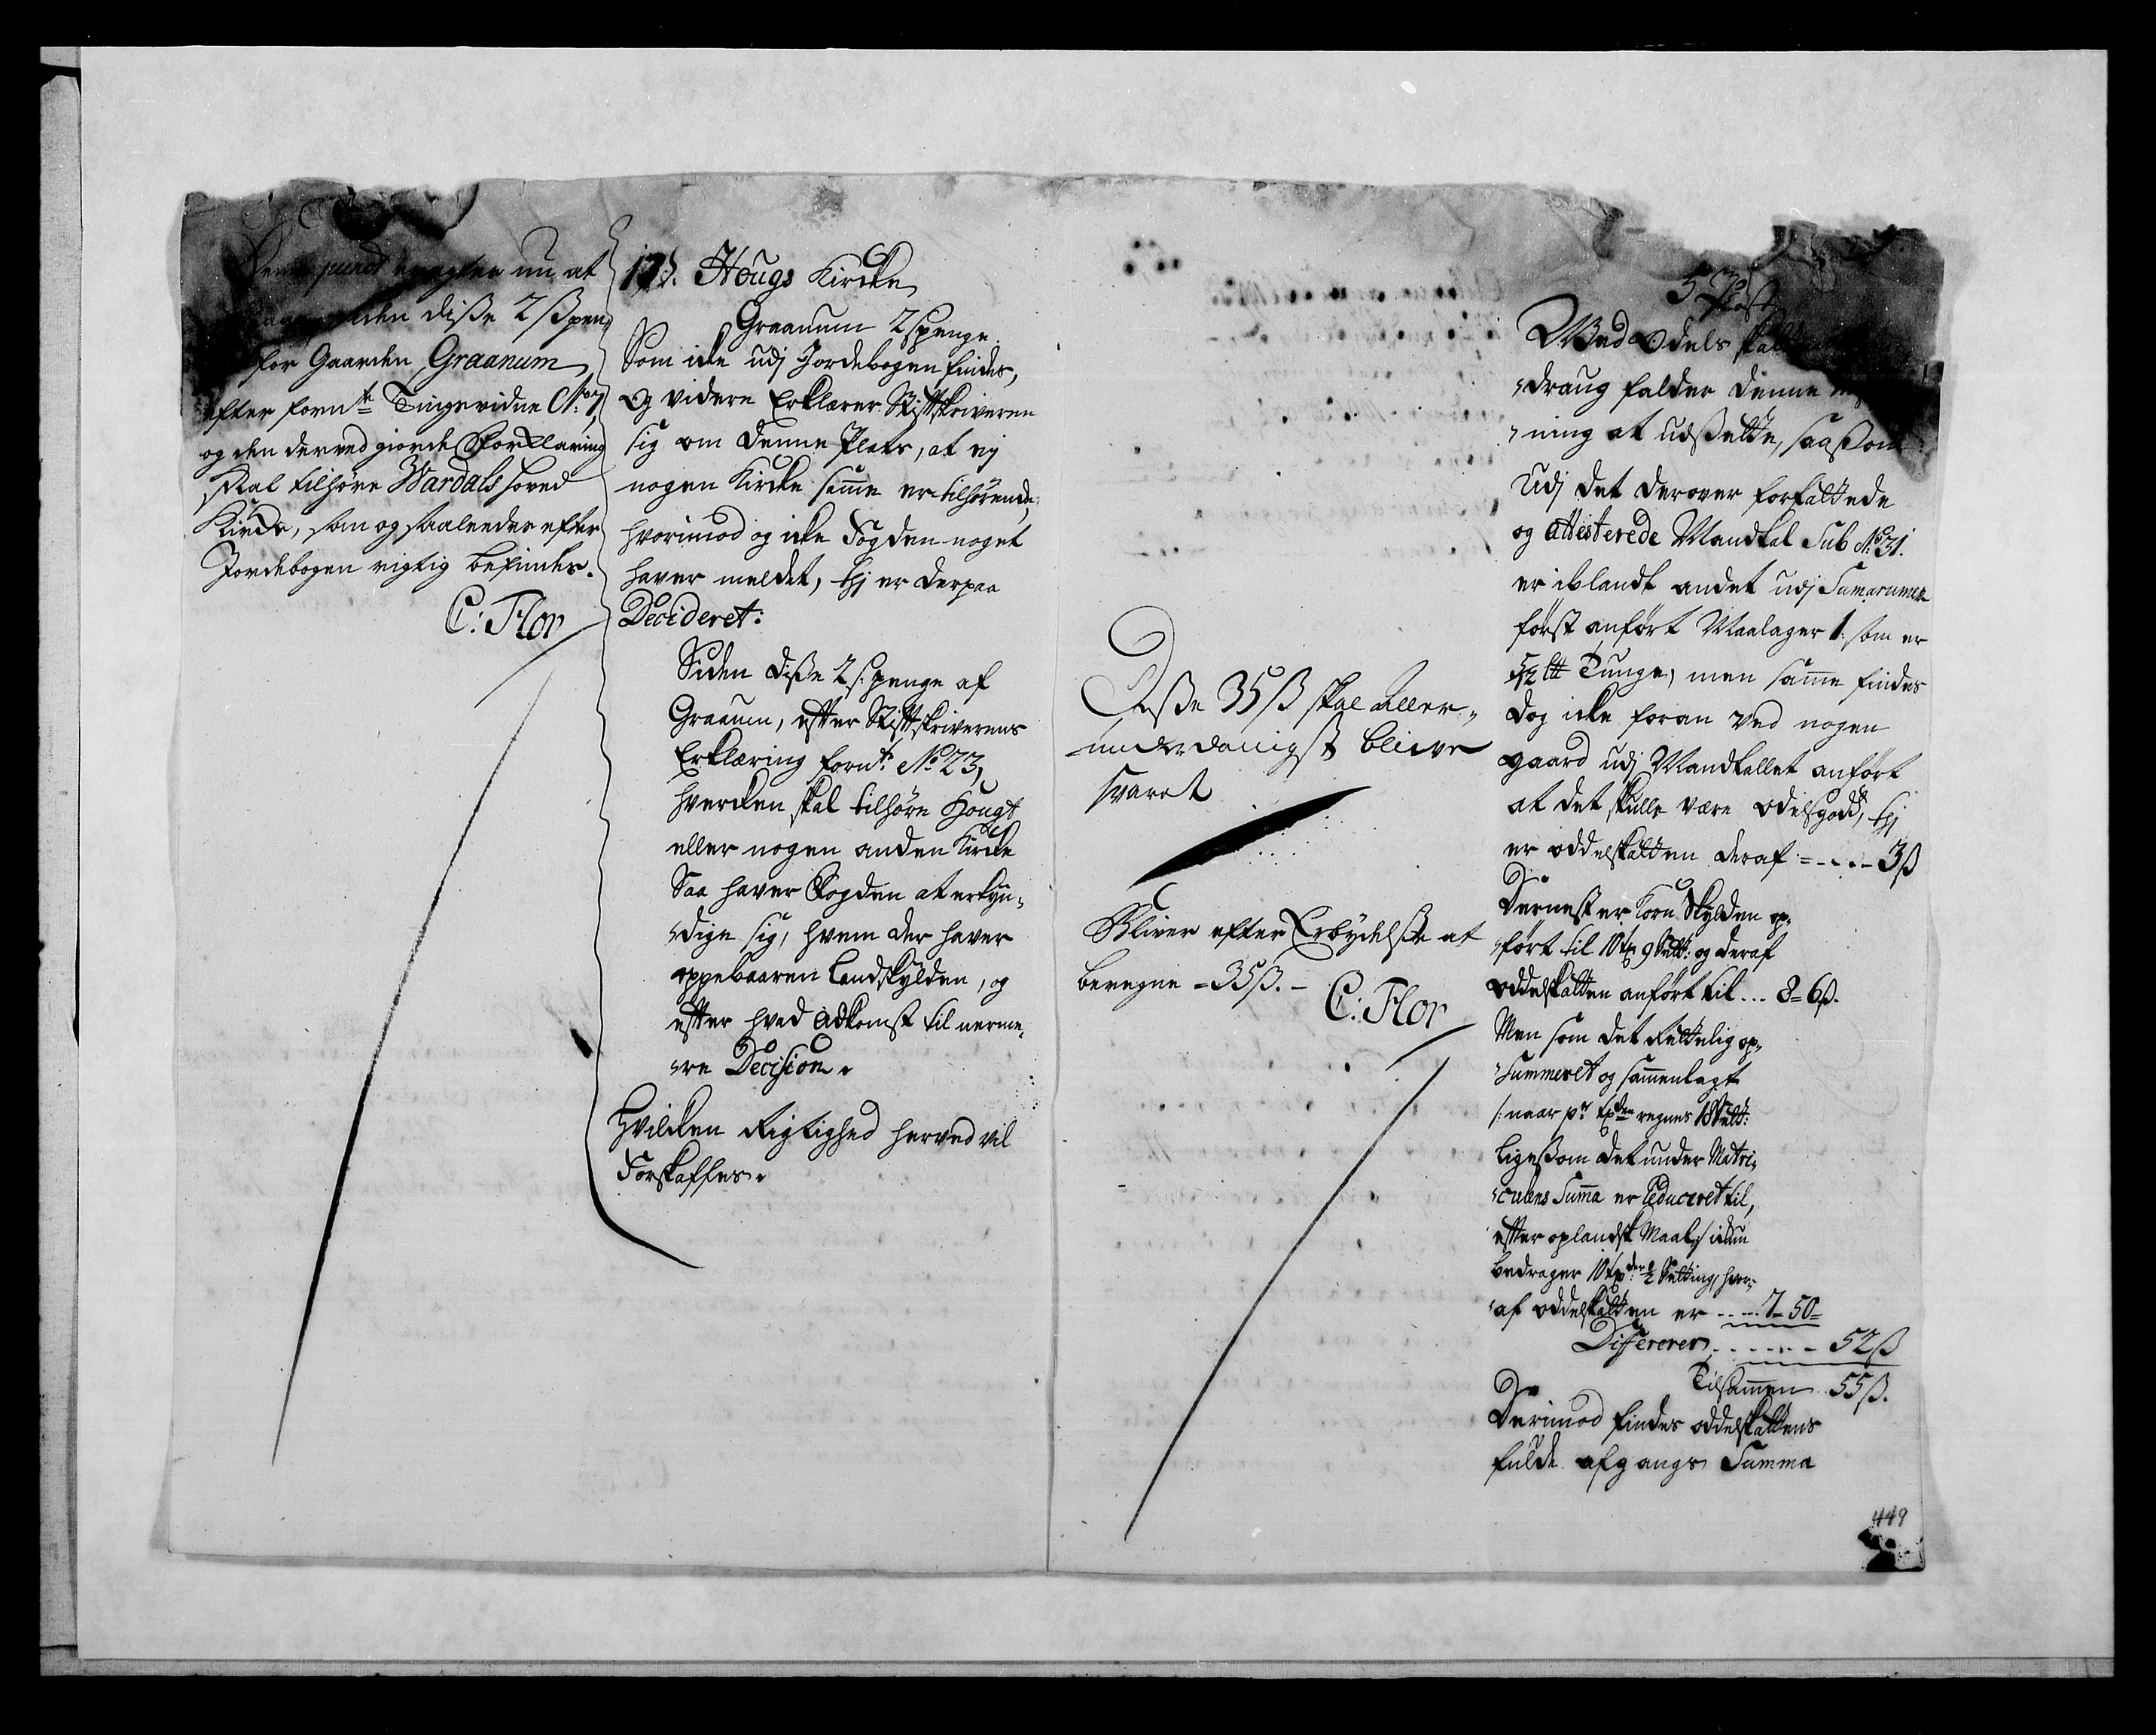 punct nu at
siden disse 2 ß pen¸
for Gaarden Graanum
efter forn:te Tingsvidne N:o 7,
og den derved giorde Forklaring
skal tilhøre Wardals hoved
Kirke, som og saaleedes efter
Jordebogen rigtig befindes.
C: Flor
17. Hougs Kircke
Graanum 2 s penge
Som icke udj Jordebogen findes,
Og videre Erklærer Stiftskriveren
sig om denne Plats, at ej
nogen Kircke samme er tilhørende,
hvorimod og icke Fogden noget
haver meldet, thj er derpaa
Decideret:
Siden disse 2 s: penge af
Graanum, efter Stiftskriverens
Erklæring forn:te No 23,
hvercken skal tilhøre Hougs
eller nogen anden Kircke
Saa haver Fogden at erkyn¸
¸dige sig, hvem der haver
oppebaaren Landskylden, og
efter hvad Adkomst til nerme¸
¸re Decision.
Hvilcken Rigtighed herved vil
Forskaffes.
Disse 35 ß skal aller¸
underdanigst blive
svaret
Bliver efter Erbydelse at
beregne = 35 ß. -
C: Flor
5 Post
Wed Odels skatt
¸draug falder denne
¸ning at udsætte, saasom
Udj det derover forfattede
og attesterede Mandtal Sub N:o 31.
er iblandt andet udj Sumarumen
først anført Maalager 1. som er
5/12 tt Tunge, men samme findes
dog icke foran ved nogen
gaard udj Mandtallet anført
at det skulle være odelsgods, thj
er oddelskatten deraf = - . . - 3 ß
Dernest er Korn Skylden op¸
¸ført til 10 tp 9 Sett: og deraf
oddelskatten anført til . . . 8 = 6 ß.
Men som det Rettelig op¸
¸summeret og sammenlagt
/: naar pr tpden regnes 18 Sett:
ligesom det under Matri¸
¸culens Summa er reduceret til,
efter oplandsk Maal :/ ickun
bedrager 10 tp:der 1/2 Setting, hvor¸
¸af oddelskatten er . . - - 7 = 50 =
Differerer - - - - - - 52 ß
Tilsammen 55 ß.
Derimod findes oddelskattens
fulde afgangs Summa
449